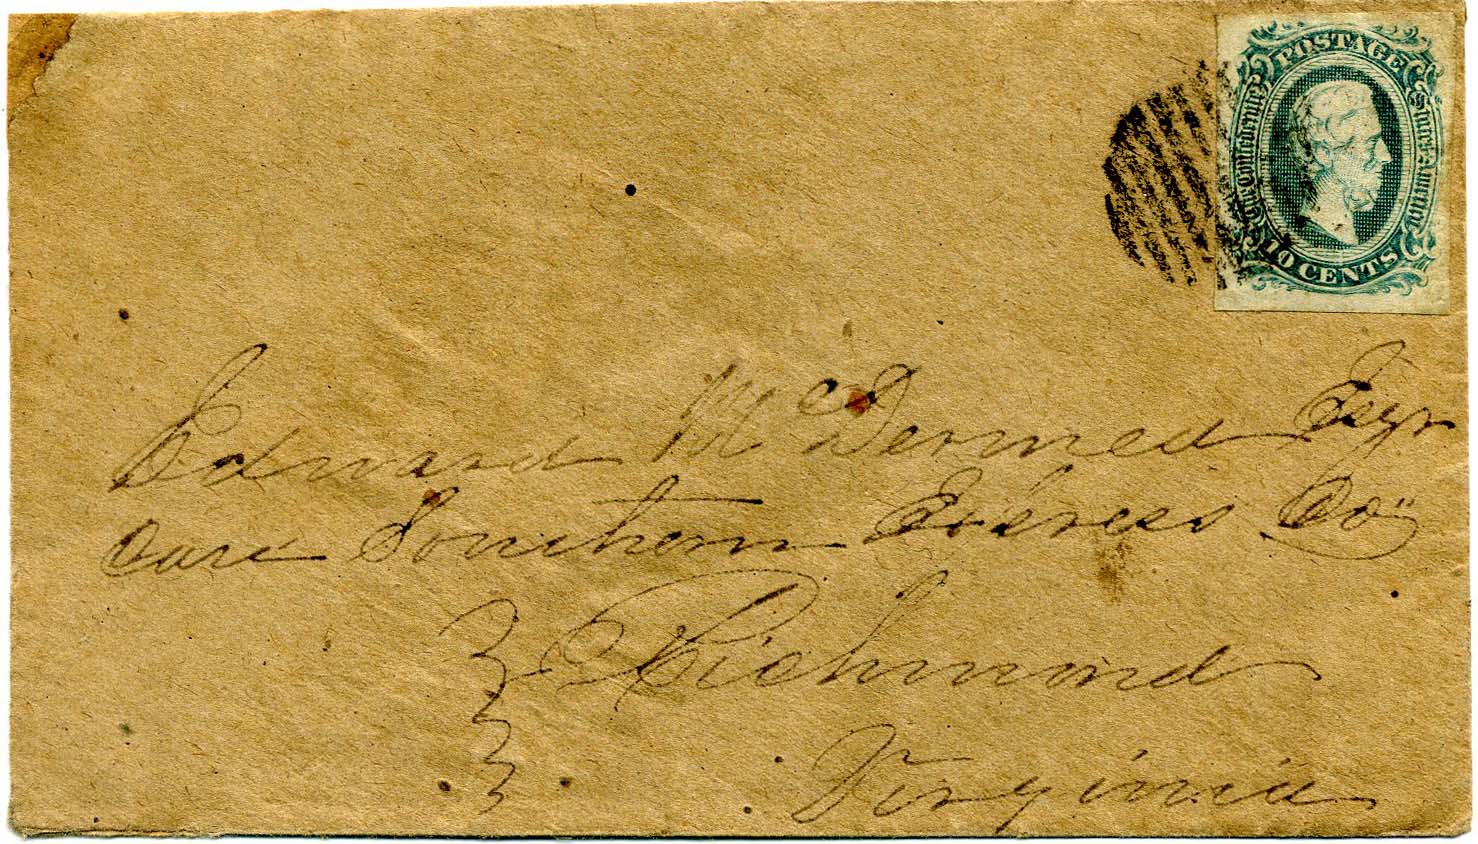 POSTAGE
The Confederate States of America
10 CENTS
Edward McDermed Esqr
Care Southern Express Co
Richmond
Virginia